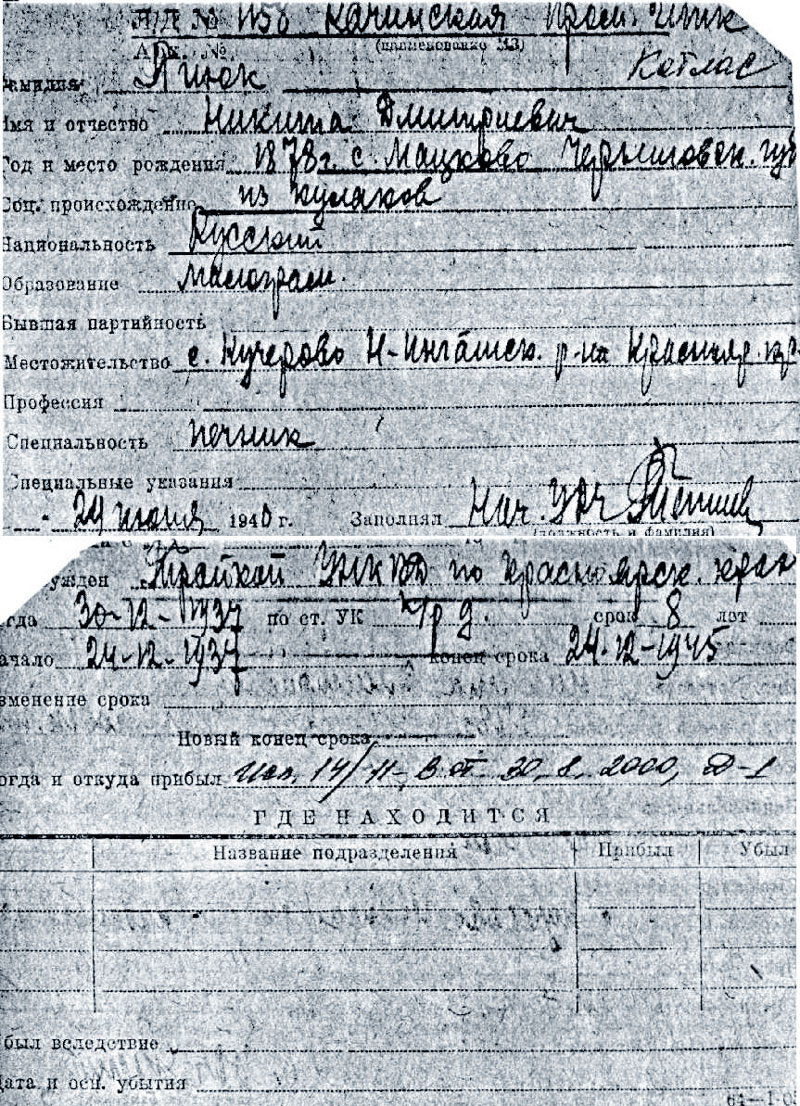 Л/Д № 1156 Качинская Пром. ИТК
Арх. №. (наименование ИЗ)
Котлас
Фамилия Пинюк
Имя и отчество Никита Дмитриевич
Год и место рождения 1878 г. с. Мацково Черниговск. губ
Соц. происхождение из кулаков
Национальность Русский
Образование малограм.
Бывшая партийность
Местожительство с. Кучерово Н-Ингашск. р-на Краснояр. кр.
Профессия
Специальность печник
Специальные указания
24 июля 1940 г. Заполнял Нач. УРЧ
(должность и фамилия)
ужден Тройкой УНКВД по Красноярск. краю
огда 30-12-1937 по ст. УК к/р д. срок 8 лет
ачало 24-12-1937 конец срока 24-12-1945
зменение срока
Новый конец срока
огда и откуда прибыл Исх. 14/Н-8 от 30.8.2000, Д-1
ГДЕ НАХОДИТСЯ
Название подразделения Прибыл Убыл
был вследствие
Дата и осн. убытия